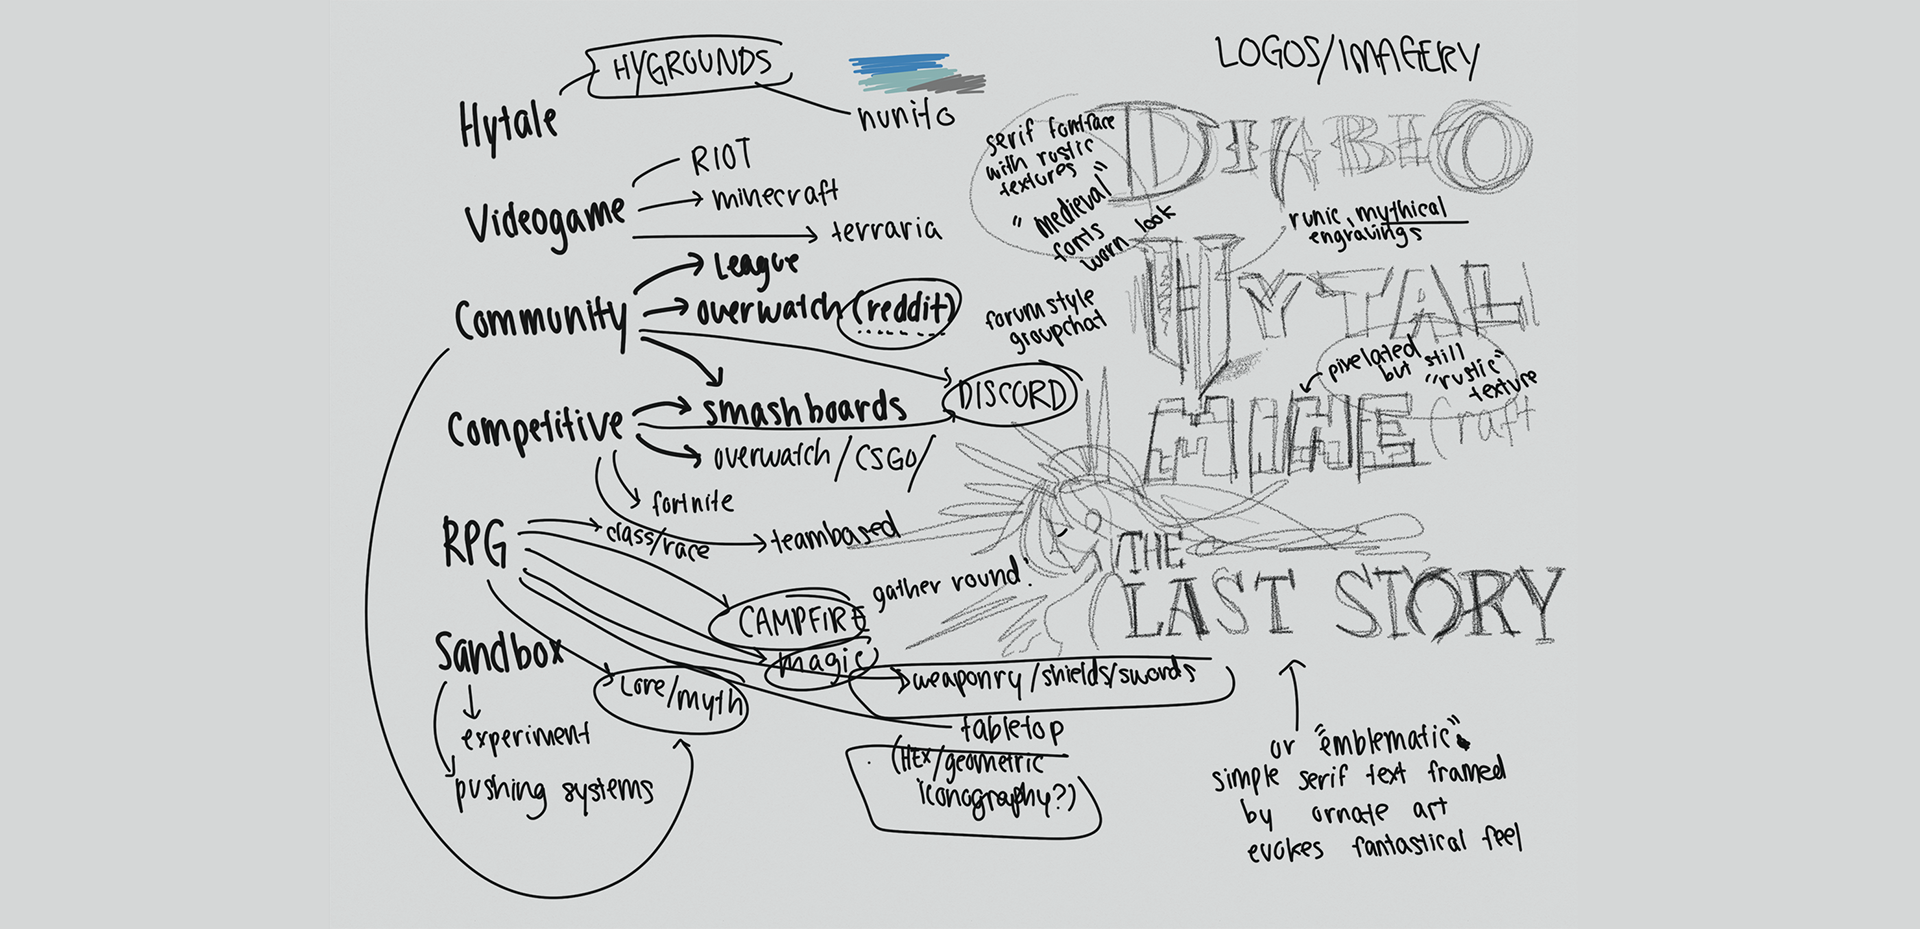 HYGROUNDS
Hytale
nunito
Videogame
RIOT
minecraft
terraria
Community
League
overwatch (reddit)
DISCORD
forum style
groupchat
Competitive
smashboards
overwatch/CSGO/
fortnite
teambased
RPG
class/race
CAMPFIRE
gather round!
magic
weaponry/shields/swords
Lore/myth
tabletop
(HEX/geometric
iconography?)
Sandbox
experiment
pushing systems
LOGOS/IMAGERY
DIABLO
serif fontface
with rustic
textures
"medieval"
fonts
worn look
runic, mythical
engravings
HYTAL
pixelated
but still
"rustic"
texture
MINECraft
THE
LAST STORY
or "emblematic"
simple serif text framed
by ornate art
evokes fantastical feel